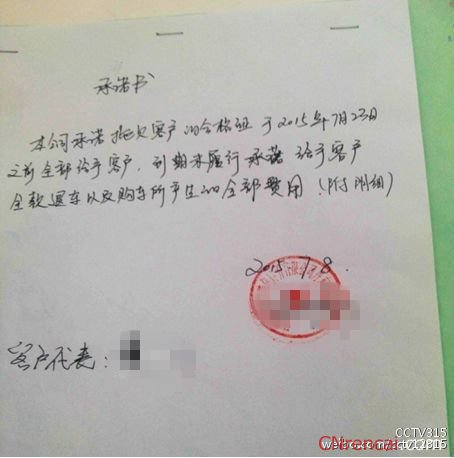 承诺书
本公司承诺拖欠客户的合格证于2015年7月23日
之前全部给予客户,到期未履行承诺给予客户
全款退车以及购车所产生的全部费用(附明细)
2015.7.8.
客户代表:
CCTV315